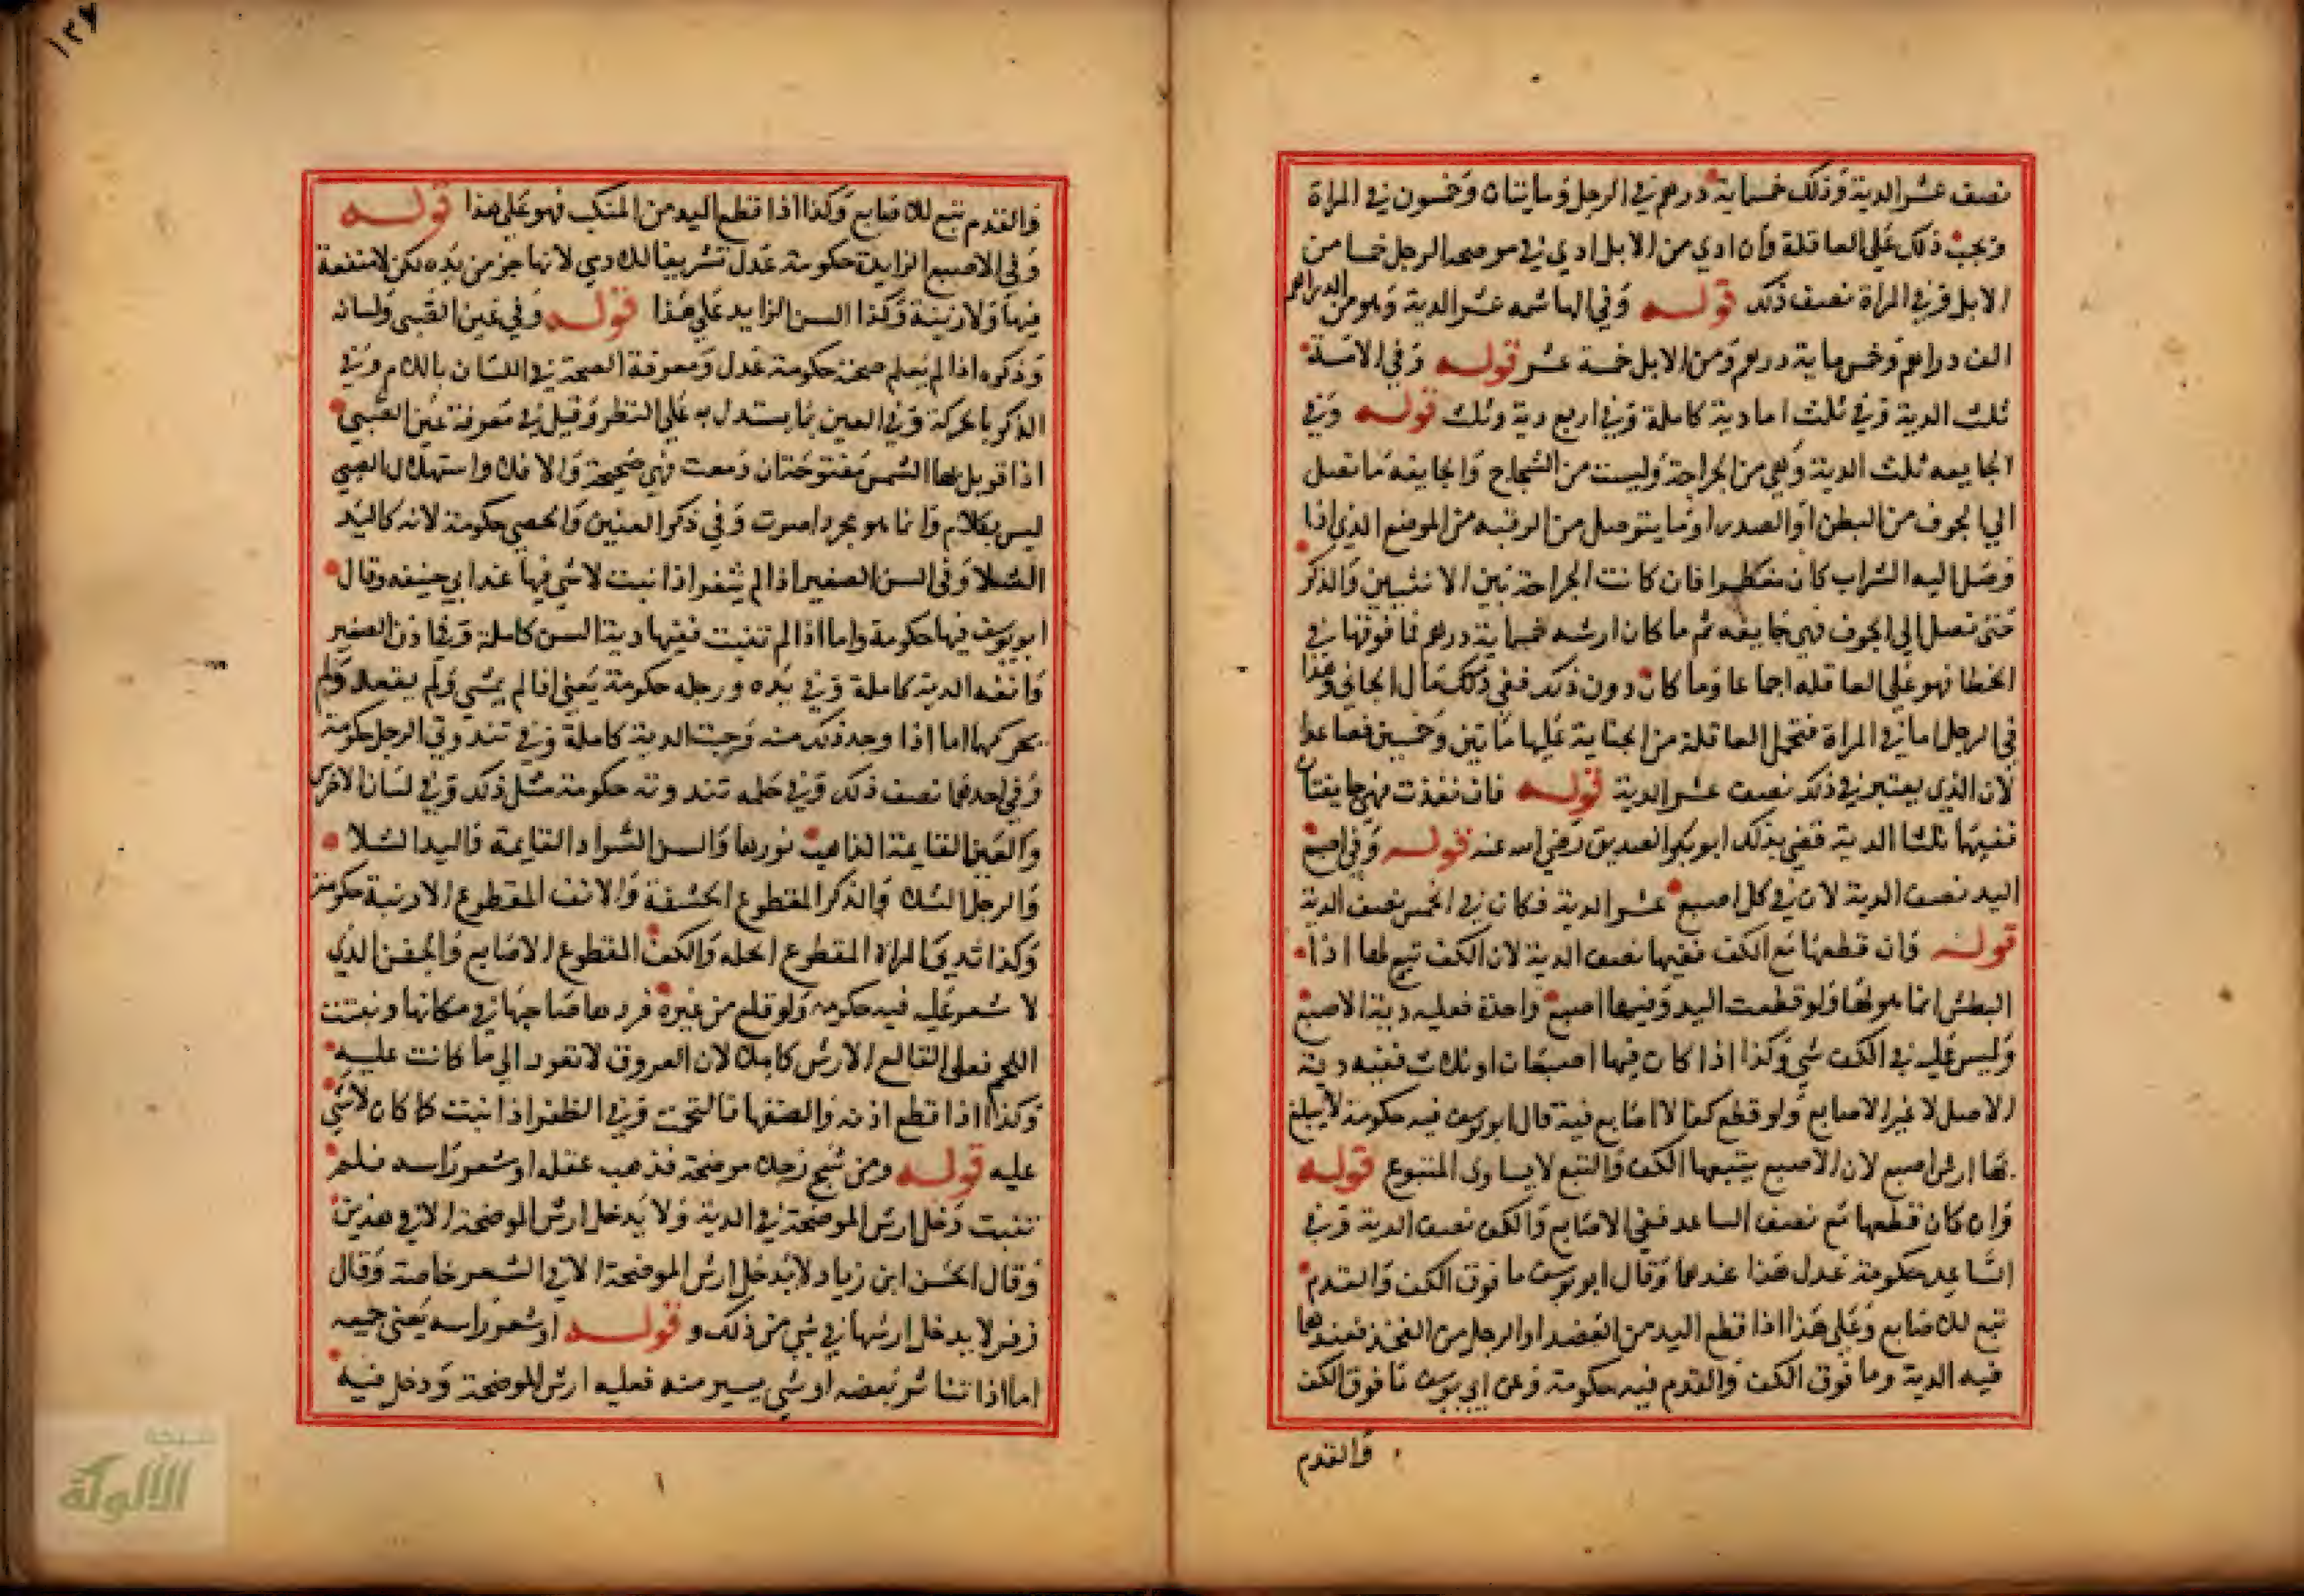 نصف عشر الدية وذلك خمسماية درهم في الرجل ومايتان وخمسون في المراة
وتجب ذلك على العاقلة وان ادي من الابل ادي في موضحه الرجل خمسا من
الابل وفي المراة نصف ذلك قوله وفي الهاشمه عشر الدية وهو من الدراهم
الف دراهم وخمسماية درهم ومن الابل خمسة عشر قوله وفي الامة
ثلث الدية وفي ثلث اما دية كاملة وفي اربع دية وثلث قوله وفي
الجايفه ثلث الدية وهي من الجراحة وليست من الشجاج والجايفة ما تصل
الي الجوف من البطن او الصدر او ما يتوصل من الرقبه من الموضع الذي اذا
وصل اليه الشراب كان مفطرا فان كانت الجراحة بين الانثيين والذكر
حتى تصل الي الجوف فهي جايفه ثم ما كان ارشه خمسماية درهم فما فوقها في
الخطا فهو على العاقله اجماعا وما كان دون ذلك ففي ذلك مال الجاني وهذا
في الرجل اما في المراة فتحمل العاقلة من الجناية عليها مأتين وخمسين فصاعدا
لان الذي يعتبر في ذلك نصف عشر الدية قوله فان نفذت فهي جايفتان
ففيها ثلثا الدية قضي بذلك ابو بكر الصديق رضي الله عنه قوله وفي اصبع
اليد نصف الدية لان في كل اصبع عشر الدية فكان في الخمس نصف الدية
قوله وان قطعها مع الكف ففيها نصف الدية لان الكف تبع لها اذا
البطش انما هو لها ولو قطعت اليد وفيها اصبع واحدة فعليه دية الاصبع
وليس عليه في الكف شي وكذا اذا كان فيها اصبعان او ثلاث ففيه دية
الاصل لا غير الاصابع ولو قطع كفا لا اصابع فيه قال ابو يوسف فيه حكومة لا يبلغ
بها ارش اصبع لان الاصبع يتبعها الكف والتبع لا يساوي المتبوع قوله
وان كان قطعها مع نصف الساعد ففي الاصابع والكف نصف الدية وفي
الساعد حكومة عدل هذا عندهما وقال ابو يوسف ما فوق الكف والقدم
تبع للاصابع وعلى هذا اذا قطع اليد من العضد او الرجل من الفخذ فعندهما
فيه الدية وما فوق الكف والقدم فيه حكومة وعن ابي يوسف ما فوق الكف
والقدم
١٣٧
والقدم تبع للاصابع وكذا اذا قطع اليد من المنكب فهو على هذا قوله
وفي الاصبع الزايدة حكومة عدل تشريفا للادمي لانها جز من يده لكن لا منفعة
فيها ولا زينة وكذا السن الزايد على هذا قوله وفي عين الصبي ولسانه
وذكره اذا لم يعلم صحته حكومة عدل ومعرفة الصحة في اللسان بالكلام وفي
الذكر بالحركة وفي العين بما يستدل به على النظر وقيل في معرفة عين الصبي
اذا قوبل بها الشمس مفتوحتان دمعت فهي صحيحة والا فلا واستهلال الصبي
ليس بكلام وانما هو مجرد اصوت وفي ذكر العنين والخصي حكومة لانه كاليد
الشلا وفي السن الصغير اذا لم يثغر اذا نبت لا شي فيها عند ابي حنيفه وقال
ابو يوسف فيها حكومة واما اذا لم تنبت ففيها دية السن كاملة وفي اذن الصغير
وانفه الدية كاملة وفي يده ورجله حكومة يعني اذا لم يمشي ولم يقعد ولم
يحركها اما اذا وجد ذلك منه وجبت الدية كاملة وفي ثندوتي الرجل حكومة
وفي احدهما نصف ذلك وفي حلمه ثندوته حكومة مثل ذلك وفي لسان الاخرس
والعين القايمة الذاهب نورها والسن السواد القايمة واليد الشلا
والرجل الشلا والذكر المقطوع الحشفة والانف المقطوع الارنبة حكومة
وكذا ثدي المراة المقطوع الحلمه والكف المقطوع الاصابع والجفن الذي
لا شعر عليه فيه حكومه ولو قلع من غيره فردها صاحبها في مكانها ونبتت
اللحم فعلى القالع الارش كاملا لان العروق لا تعود الي ما كانت عليه
وكذا اذا قطع اذنه والصقها فالتحمت وفي الظفر اذا نبت كما كان لا شي
عليه قوله ومن شج رجلا موضحة فذهب عقله او شعر راسه فلم
تنبت دخل ارش الموضحة في الدية ولا يدخل ارش الموضحة الا في هذين
وقال الحسن ابن زياد لا يدخل ارش الموضحة الا في الشعر خاصة وقال
زفر لا يدخل ارشها في شي من ذلك و قوله او شعر راسه يعني جميعه
اما اذا تناثر بعضه او شي يسير منه فعليه ارش الموضحة ودخل فيه
شبكة
الألوكة